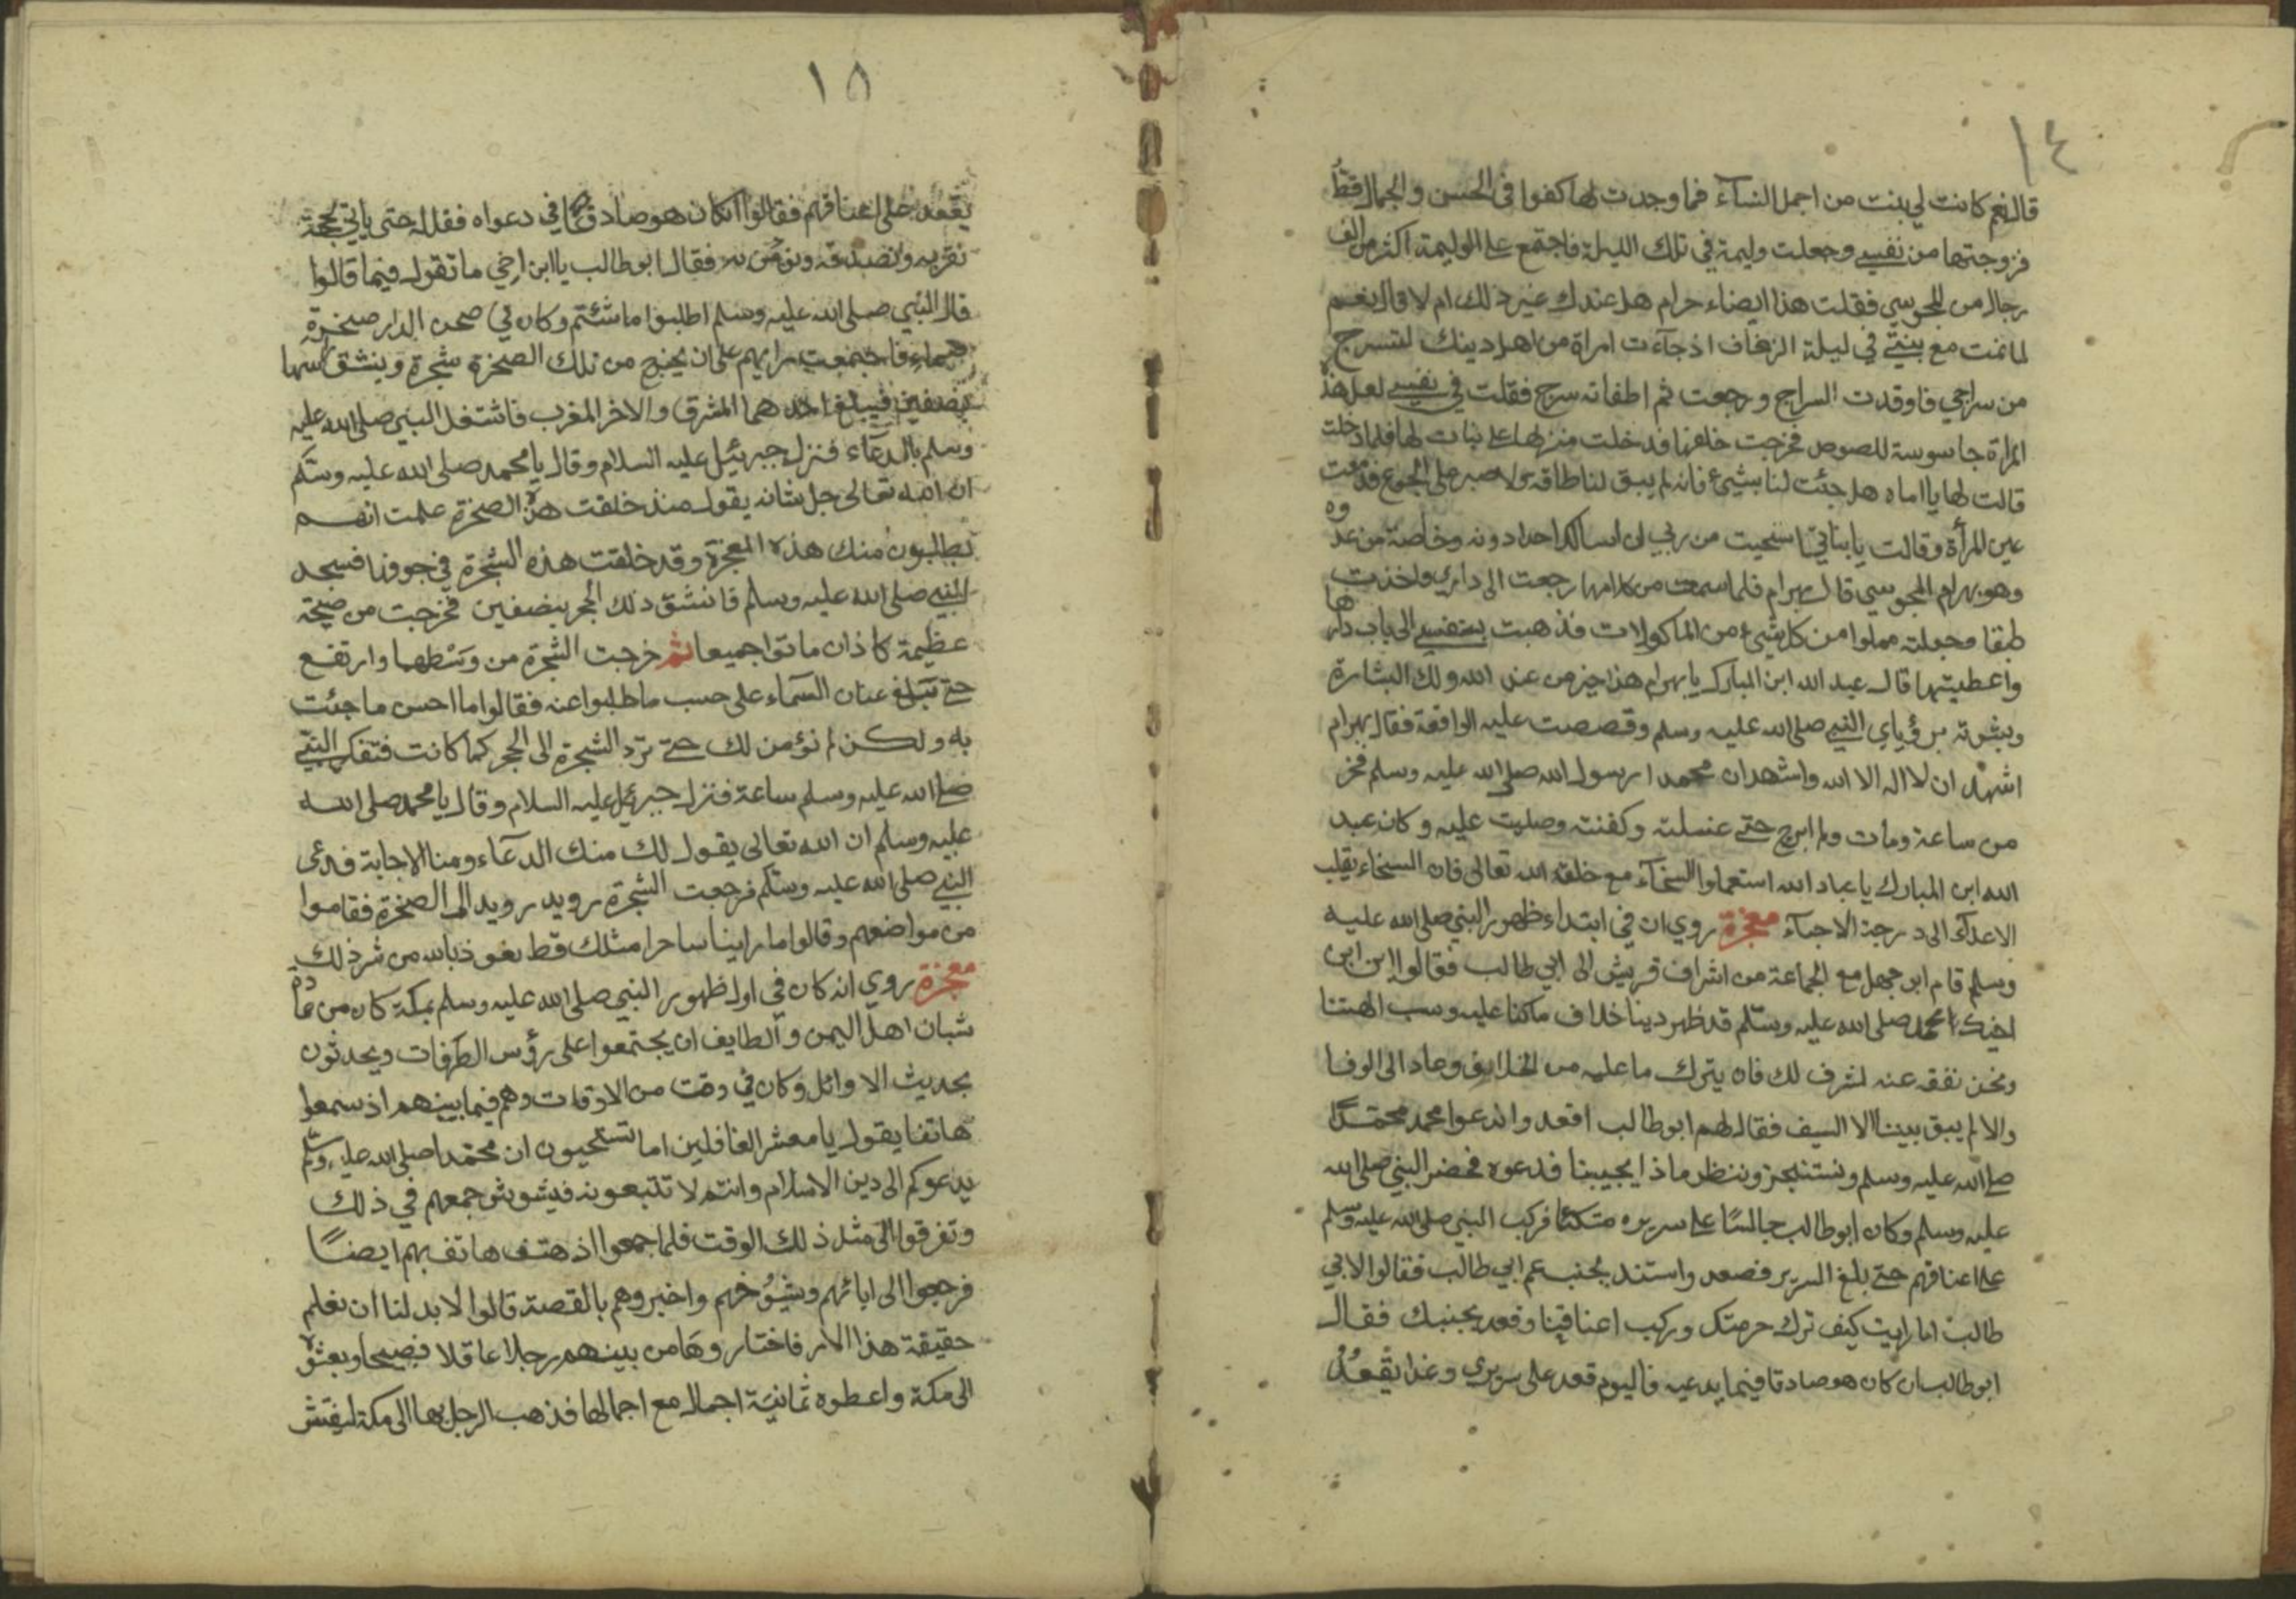 ١٤
قال نعم كانت لي بنت من اجمل النسآء فما وجدت لها كفوا في الحسن والجمال قط
فزوجتها من نفسي وجعلت وليمة في تلك الليلة فاجتمع على الوليمة اكثر من الف
رجال من المجوسي فقلت هذا ايضاء حرام هل عندك غير ذلك ام لا قال نعم
لما نمت مع بنتي في ليلة الزفاف اذ جآءت امراة من اهل دينك لتسرج
من سراجي فاوقدت السراج ورجعت ثم اطفاته سرج فقلت في نفسي لعل هذا
المراة جاسوسة للصوص فخرجت خلفها فدخلت منزلها على بنات لها فلما دخلت
قالت لها يا اماه هل جئت لنا بشيء فانه لم يبق لنا طاقة ولا صبر على الجوع فدمعت
عين المرأة وقالت يا بناتي استحيت من ربي ان اسالك احدا دونه وخاصة من عدوه
وهو بهرام المجوسي قال بهرام فلما سمعت من كلامها رجعت الى داري واخذت
طبقا وجعلته مملوا من كل شيء من الماكولات فذهبت بنفسي الى باب دارها
واعطيتها قال عبد الله ابن المبارك يا بهرام هذا خير من عند الله ولك البشارة
وبشرته برؤياي النبي صلى الله عليه وسلم وقصصت عليه الواقعة فقال بهرام
اشهد ان لا اله الا الله واشهد ان محمدا رسول الله صلى الله عليه وسلم فخر
من ساعة ومات ولم ابرح حتى غسلته وكفنته وصليت عليه وكان عبد
الله ابن المبارك يا عباد الله استعملوا السخآء مع خلق الله تعالى فان السخاء يقلب
الاعدآء الى درجة الاحبآء معجزة روي ان في ابتداء ظهور النبي صلى الله عليه
وسلم قام ابو جهل مع الجماعة من اشراف قريش الى ابي طالب فقالوا ان ابن
اخيك محمد صلى الله عليه وسلم قد ظهر دينا خلاف ما كنا عليه وسب الهتنا
ونحن نفقه عنه لشرف لك فان يترك ما عليه من الخلايق وصاد الى الوفا
والا لم يبق بيننا الا السيف فقال لهم ابو طالب اقعد واندعوا محمد محمدًا
صلى الله عليه وسلم ونستنجز وننظر ماذا يجيبنا فدعوه فحضر النبي صلى الله
عليه وسلم وكان ابو طالب جالسًا على سريره متكئا فركب النبي صلى الله عليه وسلم
على اعناقهم حتى بلغ السرير فصعد واستند بجنب عم ابي طالب فقالوا لابي
طالب اما رايت كيف ترك حرمتك وركب اعناقنا وقعد بجنبك فقال
ابو طالب ان كان هو صادقا فيما يدعيه فاليوم قعد على سريري وغدا يقعد
١٥
يقعد على اعناقهم فقالوا ان كان هو صادقا في دعواه فقل له حتى ياتي بحجة
نقربه ونصدقه ونؤمن به فقال ابو طالب يا ابن اخي ما تقول فيما قالوا
قال النبي صلى الله عليه وسلم اطلبوا ما شئتم وكان في صحن الدار صخرة
صماء فاجتمعت رايهم على ان يخرج من تلك الصخرة شجرة وينشق راسها
بنصفين فيبلغ احدهما المشرق والاخر المغرب فاشتغل النبي صلى الله عليه
وسلم بالدعآء فنزل جبرئيل عليه السلام وقال يا محمد صلى الله عليه وسلم
ان الله تعالى جل شانه يقول منذ خلقت هذه الصخرة علمت انهم
يطلبون منك هذه المعجزة وقد خلقت هذه الشجرة في جوفها فسجد
النبي صلى الله عليه وسلم فانشق ذلك الحجر بنصفين فخرجت من صيحة
عظيمة كاذان ماتوا جميعا ثم خرجت الشجرة من وسطهما وارتفع
حتى تبلغ عنان السماء على حسب ما طلبوا عنه فقالوا ما احسن ما جئت
به ولكن لم نؤمن لك حتى ترد الشجرة الى الحجر كما كانت فتفكر النبي
صلى الله عليه وسلم ساعة فنزل جبرئيل عليه السلام وقال يا محمد صلى الله
عليه وسلم ان الله تعالى يقول لك منك الدعآء ومنا الاجابة فدعى
النبي صلى الله عليه وسلم فرجعت الشجرة رويد رويد الى الصخرة فقاموا
من مواضعهم وقالوا ما راينا ساحرا مثلك قط نعوذ بالله من شر ذلك
معجزة روي انه كان في اول ظهور النبي صلى الله عليه وسلم بمكة كان من عادة
شبان اهل اليمن والطايف ان يجتمعوا على رؤس الطرفات ويحدثون
بحديث الاوائل وكان في وقت من الاوقات وهم فيما بينهم اذ سمعوا
هاتفا يقول يا معشر الغافلين اما تستحيون ان محمدا صلى الله عليه وسلم
يدعوكم الى دين الاسلام وانتم لا تتبعونه فيشوش جمعهم في ذلك
وتفرقوا الى مثل ذلك الوقت فلما اجمعوا اذ هتف هاتف بهم ايضًا
فرجعوا الى ابائهم وشيوخهم واخبروهم بالقصة قالوا لا بد لنا ان نعلم
حقيقة هذا الامر فاختاروها من بينهم رجلا عاقلا فصيحا وبعثوه
الى مكة واعطوه ثمانية اجمال مع اجمالها فذهب الرجل بها الى مكة ليفتش